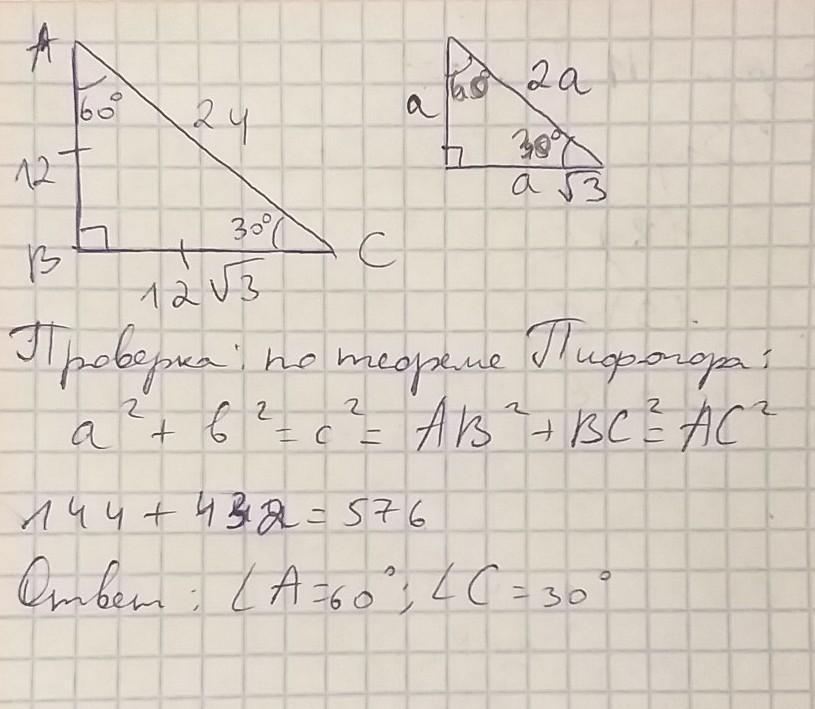 A
60°
24
12
30°
B
C
12√3
60°
2a
a
30°
a √3
Проверка: по теореме Пифагора:
a² + b² = c² = AB² + BC² = AC²
144 + 432 = 576
Ответ: ∠A=60°; ∠C=30°